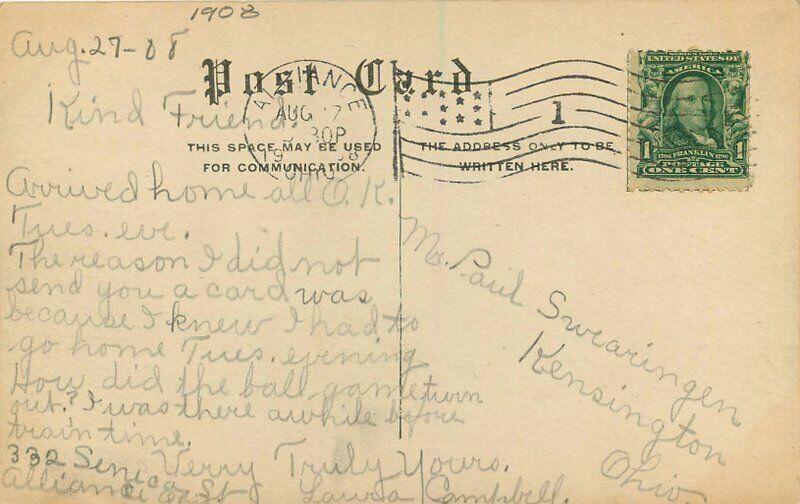 1908
Aug. 27-08
Post Card
Kind Friend.
THIS SPACE MAY BE USED
FOR COMMUNICATION.
THE ADDRESS ONLY TO BE
WRITTEN HERE.
ALLIANCE
AUG 27
30P
1908
OHIO
1
SERIES 1902
UNITED STATES OF
AMERICA
1706 FRANKLIN 1790
1 POSTAGE 1
ONE CENT
Arrived home all O.K.
Tues. eve.
The reason I did not
send you a card was
because I knew I had to
go home Tues. evening
How did the ball game turn
out.? I was there awhile before
train time.
Verry Truly Yours.
Laura Campbell.
332 Seneca
Alliance O. St
Mr. Paul Swearingen
Kensington
Ohio